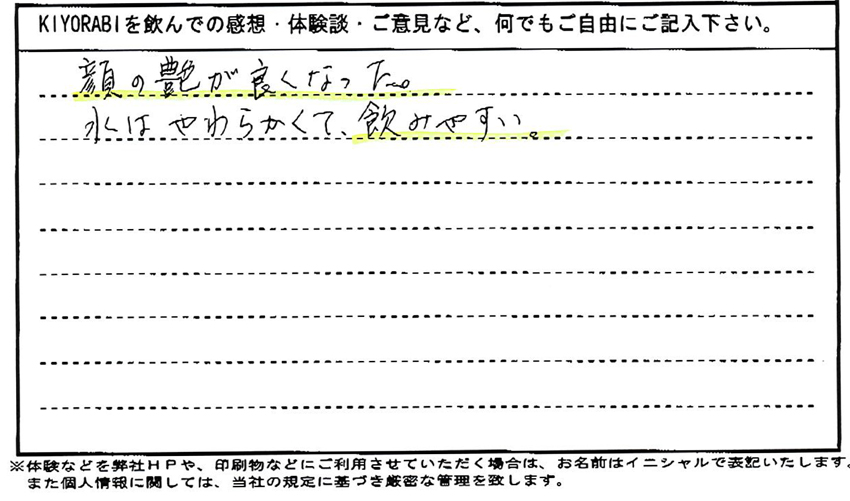 KIYORABIを飲んでの感想・体験談・ご意見など、何でもご自由にご記入下さい。
顔の艶が良くなった。
水はやわらかくて、飲みやすい。
※体験などを弊社HPや、印刷物などにご利用させていただく場合は、お名前はイニシャルで表記いたします。
また個人情報に関しては、当社の規定に基づき厳密な管理を致します。